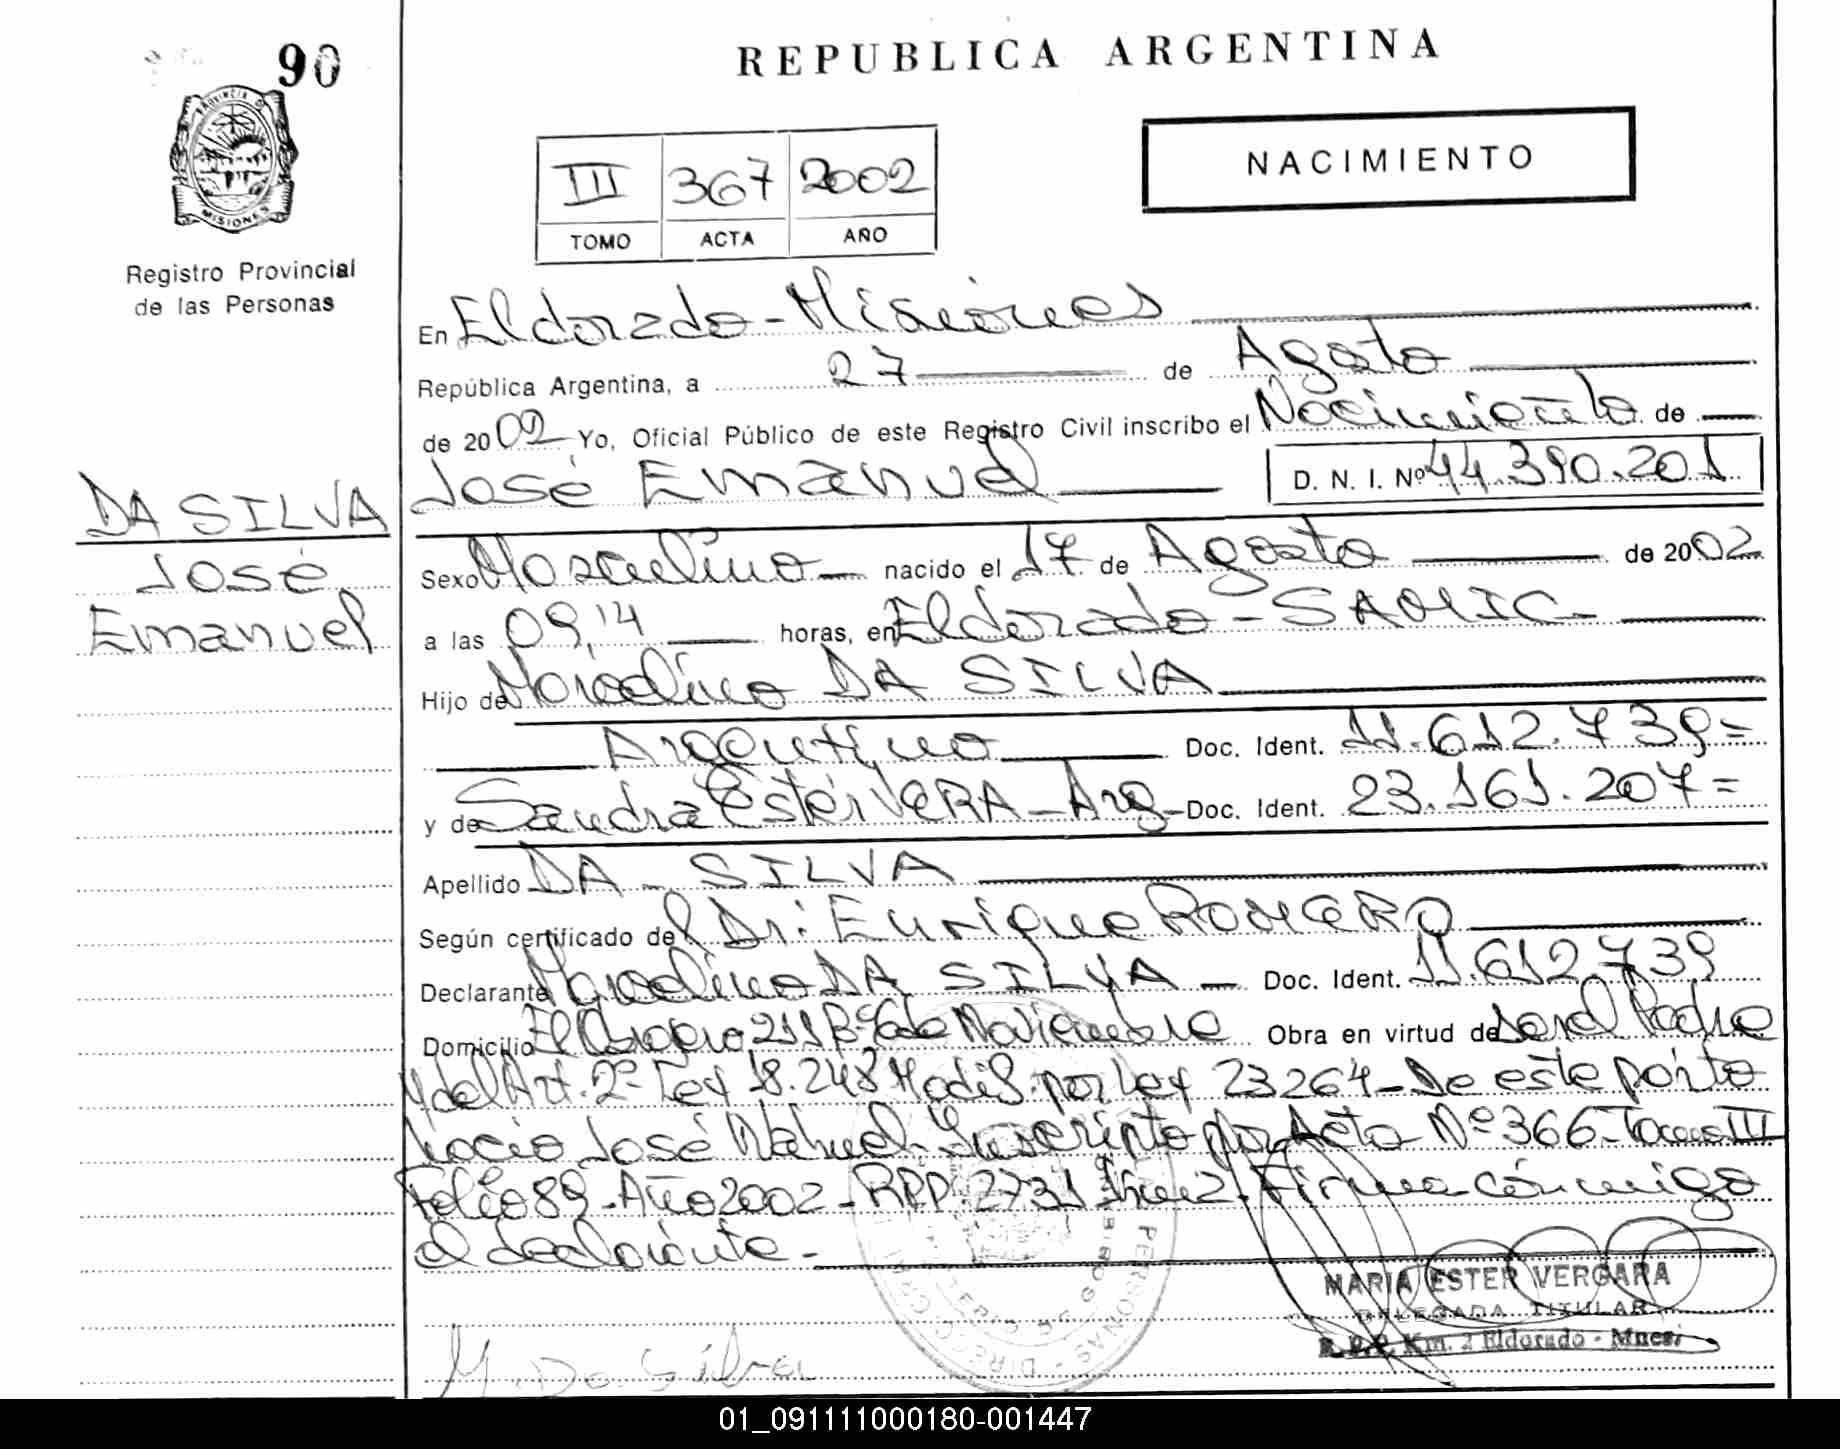 90
PROVINCIA D
MISIONES
Registro Provincial
de las Personas
REPUBLICA ARGENTINA
NACIMIENTO
III 367 2002
TOMO ACTA AÑO
En Eldorado - Misiones
República Argentina, a 27 de Agosto
de 2002 Yo, Oficial Público de este Registro Civil inscribo el Nacimiento de
José Emanuel D. N. I. Nº 44.390.201
DA SILVA
José
Emanuel
Sexo Masculino nacido el 17 de Agosto de 2002
a las 09,14 horas, en Eldorado - SAMIC -
Hijo de Marcelino DA SILVA
Argentino Doc. Ident. 11.612.739=
y de Sandra Ester VERA - Arg - Doc. Ident. 23.161.207=
Apellido DA SILVA
Según certificado del Dr: Enrique ROMERO
Declarante Marcelino DA SILVA - Doc. Ident. 11.612.739
Domicilio 211 Bº de Noviembre Obra en virtud de Padre
y del Art. 2º Ley 18.248 Modif. por Ley 23264 - De este parto
nació José Nahuel - Inscripto por Acta Nº 366 - Tomo III
Folio 89 - Año 2002 - RPP 2731 Km 2. Firma conmigo
el declarante -
MARIA ESTER VERGARA
DELEGADA TITULAR
R. P. P. Km. 2 Eldorado - Mnes.
M. Da Silva
01_091111000180-001447